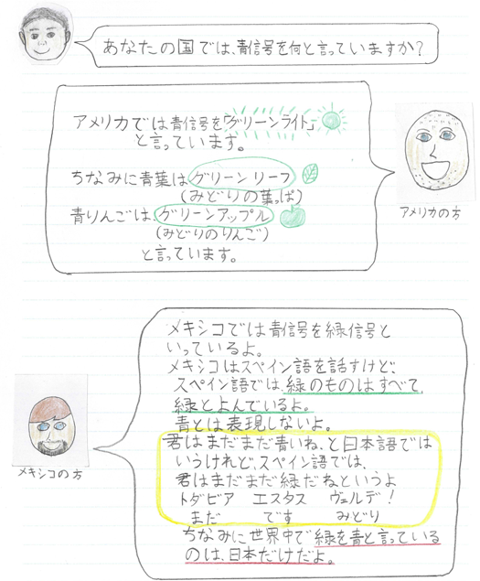 あなたの国では、青信号を何と言っていますか?
アメリカでは青信号を「グリーンライト」
と言っています。
ちなみに青葉はグリーンリーフ
(みどりの葉っぱ)
青りんごは、グリーンアップル
(みどりのりんご)
と言っています。
アメリカの方
メキシコでは青信号を緑信号と
いっているよ。
メキシコはスペイン語を話すけど、
スペイン語では、緑のものはすべて、
緑とよんでいるよ。
青とは表現しないよ。
君はまだまだ青いね、と日本語では
いうけれど、スペイン語では、
君はまだまだ緑だねというよ
トダビア エスタス ヴェルデ!
まだ です みどり
ちなみに世界中で緑を青と言っている
のは、日本だけだよ。
メキシコの方